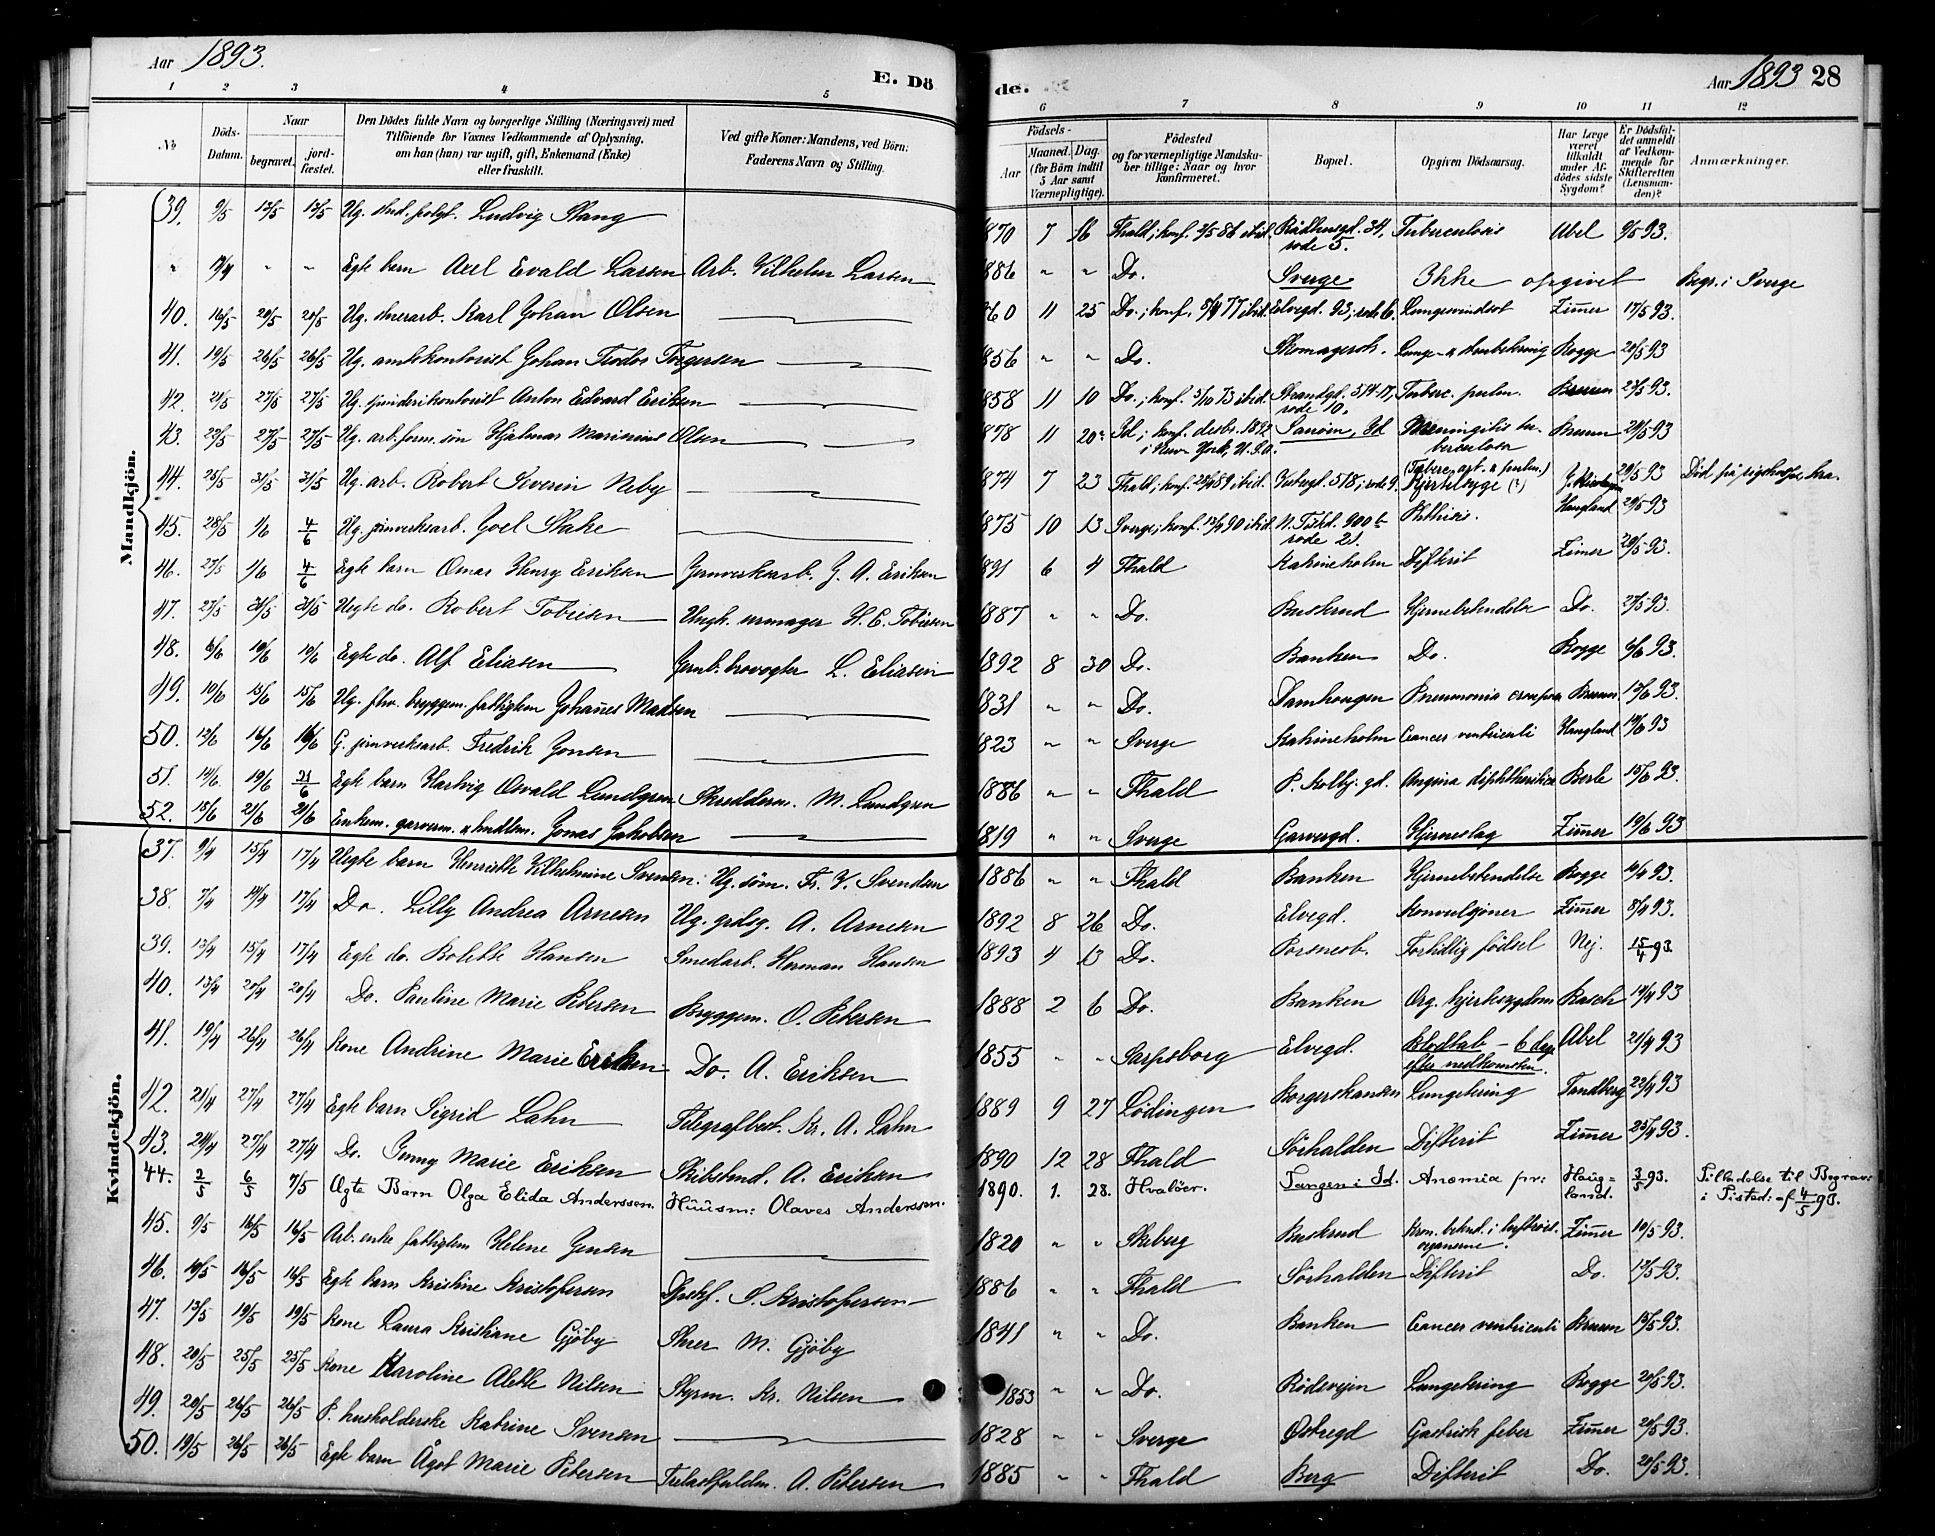 Aar 1893.
E. Dö
de.
Aar 1893 28
1 2 3 4 5 6 7 8 9 10 11 12
No
Döds-Datum.
Naar
begravet.
jord-fæstet.
Den Dödes fulde Navn og borgerlige Stilling (Næringsvei) med
Tilföiende for Voxnes Vedkommende af Oplysning,
om han (hun) var ugift, gift, Enkemand (Enke)
eller fraskilt.
Ved gifte Koner: Mandens, ved Börn:
Faderens Navn og Stilling.
Födsels-
Aar
Maaned. Dag.
(for Börn indtil
5 Aar samt
Værnepligtige).
Födested
og for værnepligtige Mandska-
ber tillige: Naar og hvor
konfirmeret.
Bopæl.
Opgiven Dödsaarsag.
Har Læge
været
tilkaldt
under Af-
dödes sidste
Sygdom?
Er Dödsfal-
det anmeldt
af Vedkom-
mende for
Skifteretten
(Lensman-
den)?
Anmærkninger.
Mandkjön.
39. 9/5 13/5 13/5 Ug. stud. polyt. Ludvig Stang 1870 7 16 Fhald; konf. 86 ibid. Rådhusgd. 34, rode 5. Tuberculosis Abel 9/5 93.
" " " Egte barn Axel Evald Larsen Arb. Vilhelm Larsen 1886 " " Do. Sverge Ikke opgivet Begr. i Sverge
40. 16/5 20/5 20/5 Ug. murerarb. Karl Johan Olsen 1860 11 25 Do.; konf. 77 ibid. Elvegd. 93; rode 6. Lungesvindsot Zimer 17/5 93.
41. 19/5 26/5 26/5 Ug. amtskontorist Johan Teodor Torgersen 1856 " " Do. Skomagerch. Rogge 20/5 93
42. 21/5 27/5 27/5 Ug. kontorist Anton Edvard Eriksen 1858 11 10 Do.; konf. 5/10 73 ibid. Strandgd. rode 10. Tuberc. pulm. Bruun 23/5 93.
43. 23/5 27/5 27/5 Ug. arb. form. sön Hjalmar Marinius Olsen 1878 11 20 Id; konf. desbr. 1892 i New York, U.S.A. Id Meningitis tuberculosa Bruun 24/5 93
44. 25/5 31/5 31/5 Ug. arb. Robert Severin Neby 1874 7 23 Fhald; konf. 89 ibid. Vestregd. 518; rode 9. (Tuberc. art. & pulm.) Hjertesyge (?) 29/5 93 Död på rigshosp., Kra.
45. 28/5 1/6 4/6 Ug. jernverksarb. Joel Stake 1875 10 13 Sverge; konf. 90 ibid. N. Tistd. 900 b rode 21. Phthisis. Haugland 29/5 93
46. 27/5 1/6 4/6 Egte barn Omar Henry Eriksen Jernverksarb. J. A. Eriksen 1891 6 4 Fhald Katrineholm Difterit Zimer 29/5 93.
47. 27/5 31/5 31/5 Uegte do. Robert Tobiesen Ungk. urmager H. E. Tobiesen 1887 " " Do. Buskrud Hjernebetendelse Do. 27/5 93.
48. 6/6 10/6 10/6 Egte do. Alf Eliasen Jernb. brovogter L. Eliasen 1892 8 30 Do. Banken Do. Rogge 6/6 93.
49. 10/6 15/6 15/6 Ug. fhv. bryggem. fattiglem Johanes Madsen 1831 " " Do. Damhaugen Pneumonia crouposa Bruun 12/6 93.
50. 12/6 16/6 16/6 G. jernverksarb. Fredrik Jonsen 1823 " " Sverge Katrineholm Cancer ventriculi Haugland 14/6 93
51. 14/6 19/6 21/6 Egte barn Hartvig Osvald Lundgren Skredderm. M. Lundgren 1886 " " Fhald P. Kolbj. gd. Angina diphtheritica Berle 15/6 93.
52. 18/6 21/6 21/6 Enkem. garverm. & hndlm. Jonas Jakobsen 1819 " " Sverge Garvergd. Hjerneslag Zimer 19/6 93
Kvindekjön.
37. 9/4 15/4 17/4 Uegte barn Henriette Vilhelmine Svensen. Ug. söm. Fr. V. Svendsen 1886 " " Fhald Banken Hjernebetendelse Rogge 10/4 93.
38. 7/4 14/4 17/4 Do. Lilly Andrea Arnesen Ug. grdsg. A. Arnesen 1892 8 26 Do. Elvegd. Konvulsjoner Zimer 8/4 93.
39. 13/4 15/4 17/4 Egte do. Bolette Hansen Smedarb. Herman Hansen 1893 4 13 Do. Porsnesb. Fortidlig födsel Nej. 15/4 93.
40. 13/4 20/4 20/4 Do. Pauline Marie Petersen Bryggem. O. Petersen 1888 2 6 Do. Banken Org. hjertesygdom Rasch 14/4 93
41. 19/4 26/4 26/4 Kone Andrine Marie Eriksen Do. A. Eriksen 1855 " " Sarpsborg Elvegd. Blodtab - 6 dage efter nedkomsten. Abel 21/4 93
42. 21/4 27/4 27/4 Egte barn Sigrid Lahn Telegrafbest. Kr. A. Lahn 1889 9 27 Lödingen Borgerskansen Lungebetending Tandberg 22/4 93
43. 24/4 27/4 27/4 Do. Jenny Marie Eriksen Skibstmd. A. Eriksen 1890 12 28 Fhald Sörhalden Difterit Zimer 25/4 93.
44. 2/5 6/5 7/5 Ægte Barn Olga Elida Anderssen. Huusm: Olaves Anderssen. 1890. 1. 28. Hvaløer. Tangen i Id. Anæmia pr: Haugland. 3/5 93. Tilladelse til Begrav: i Tistedal af 4/5 93.
45. 9/5 16/5 16/5 Arb. enke fattiglem Helene Jensen 1820 " " Skeberg Buskrud Kron. betnd. i luftrörsorganerne. Zimer 10/5 93.
46. 10/5 16/5 16/5 Egte barn Kristine Kristofersen S. Kristofersen 1886 " " Fhald Sörhalden Difterit Do. 12/5 93.
47. 13/5 19/5 19/5 Kone Laura Kristiane Gjöby Murer M. Gjöby 1841 " " Do. Banken Cancer ventriculi Bruun 15/5 93.
48. 20/5 25/5 25/5 Kone Karoline Alette Nilsen Styrm. Kr. Nilsen 1853 " " Do. Rödsvejen Lungebetending Rogge 20/5 93.
49. 20/5 26/5 26/5 P. husholderske Katrine Svensen 1828 " " Sverge Östregd Gastrisk feber Zimer 20/5 93.
50. 19/5 26/5 26/5 Egte barn Ågot Marie Petersen A. Petersen 1885 " " Fhald Berg Difterit Do. 20/5 93.